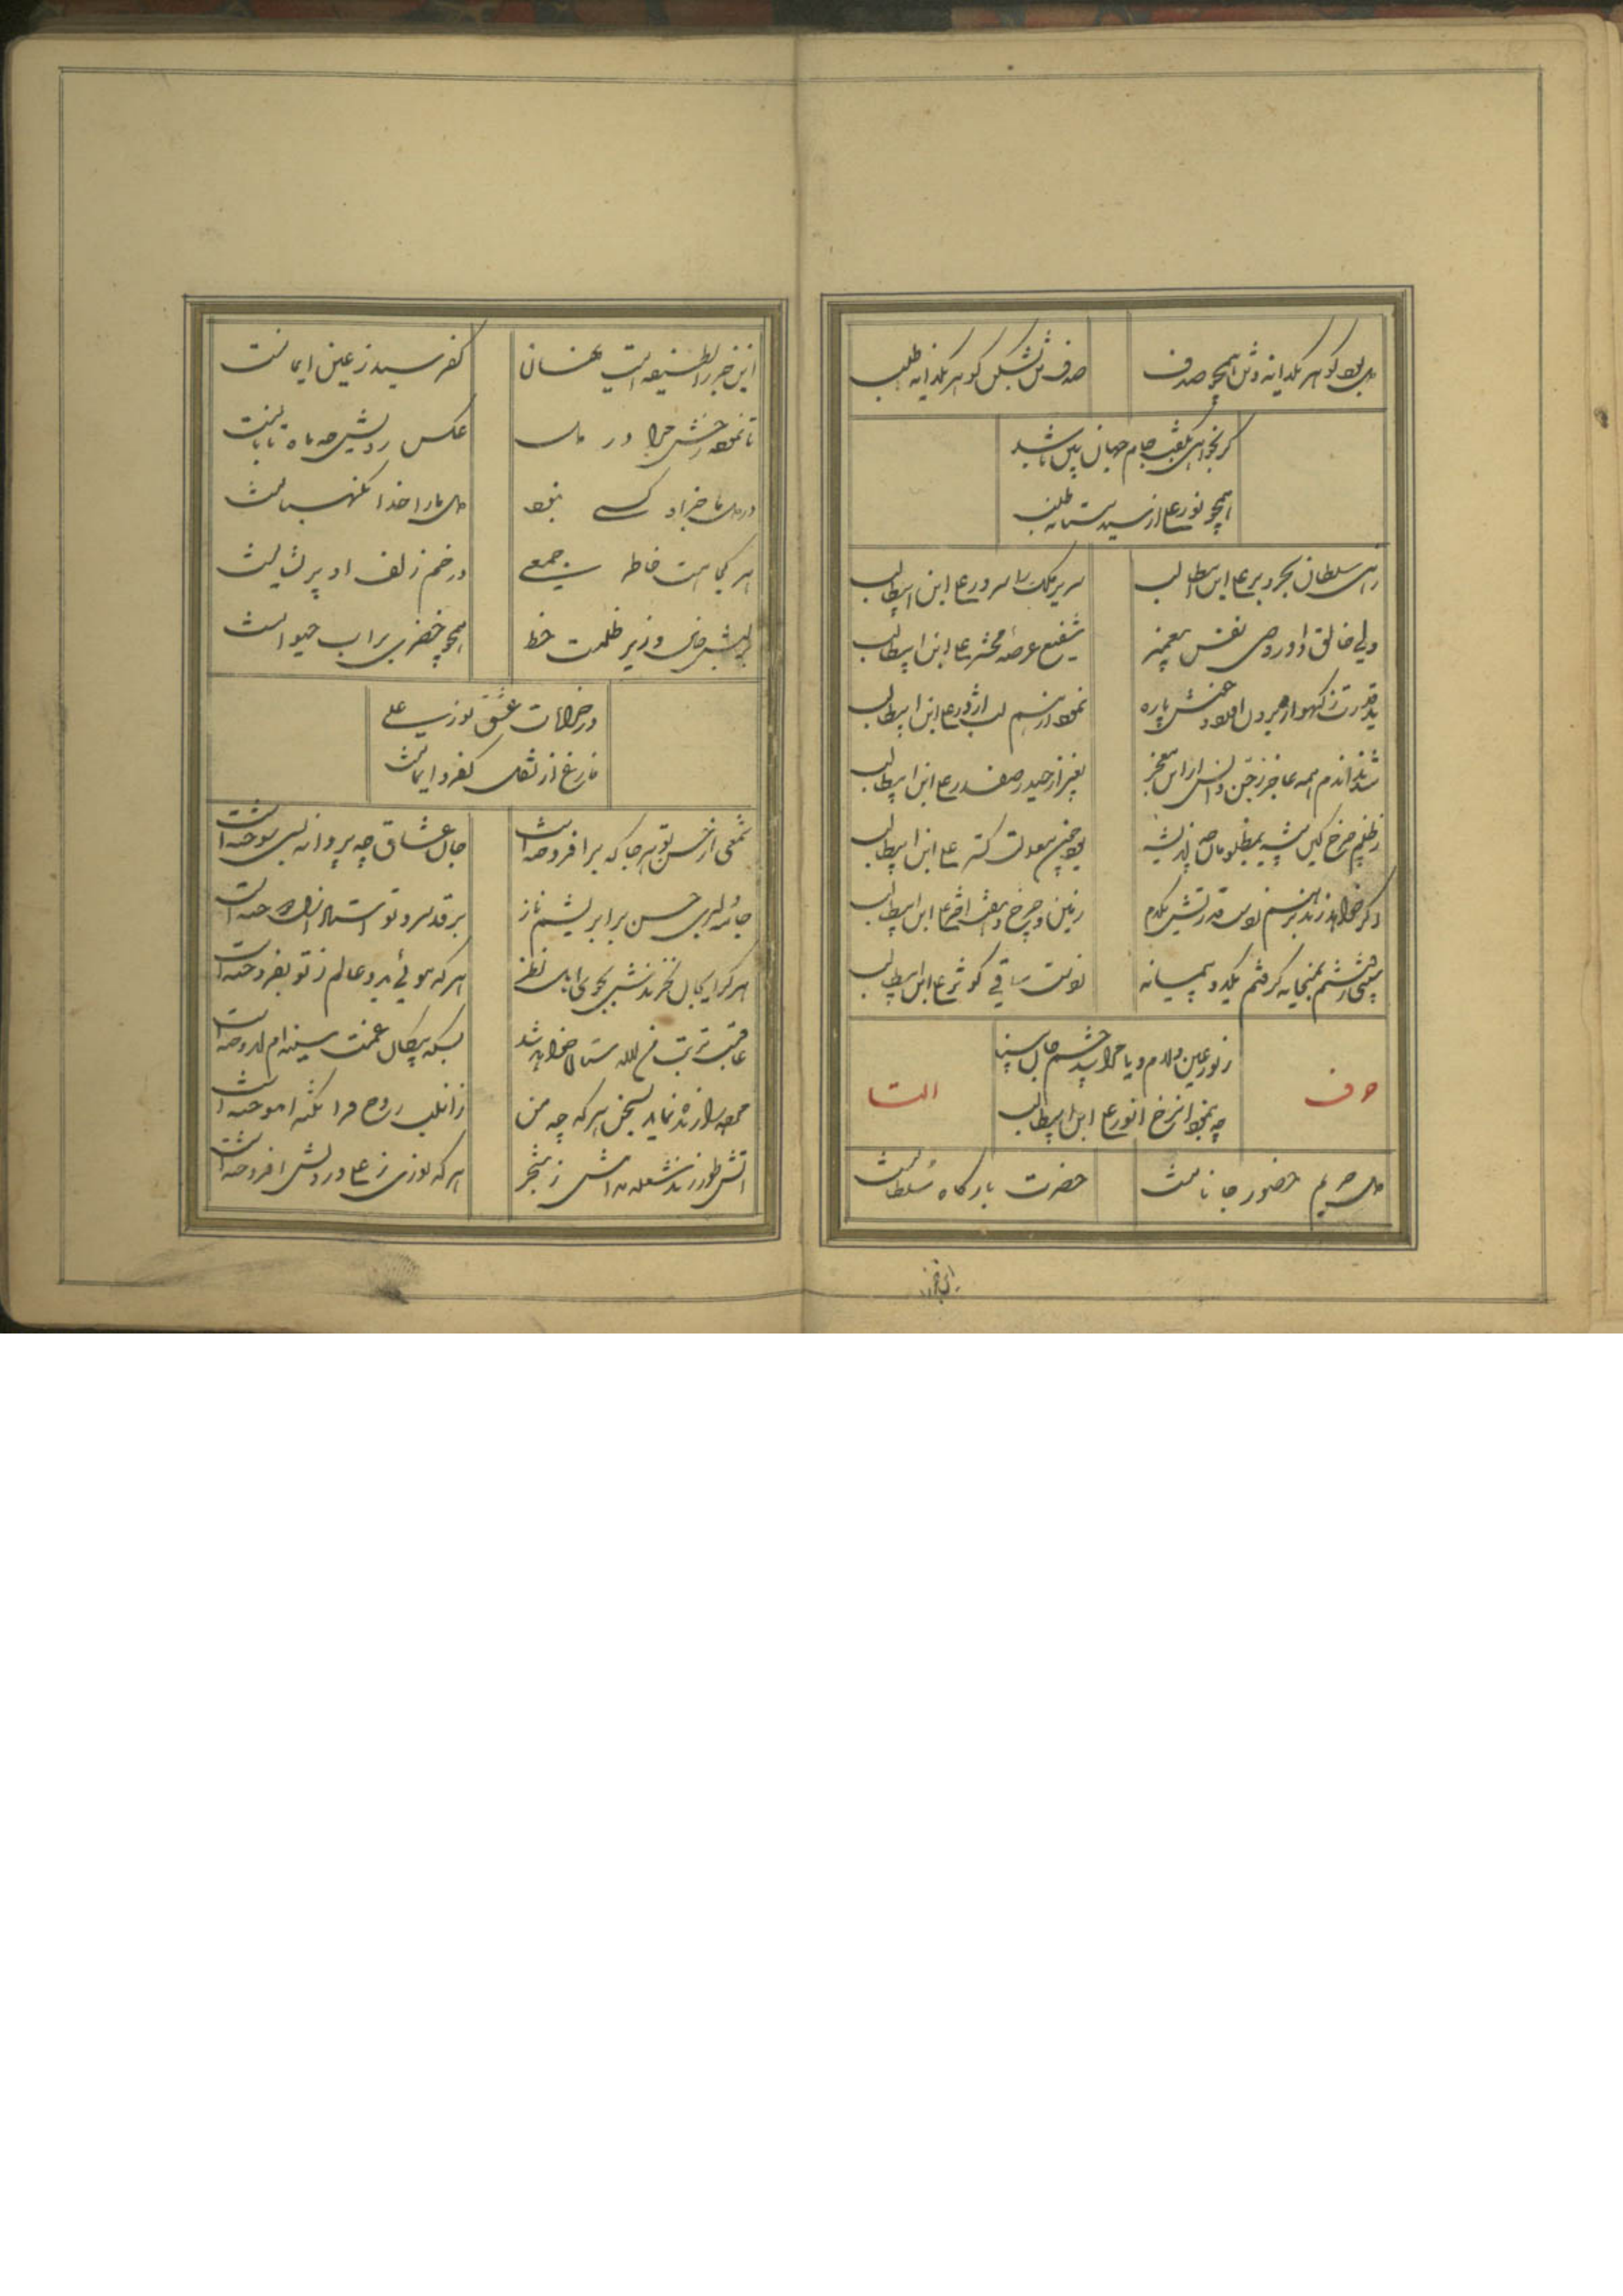 دل بود گوهر یکدانه و تن همچو صدف
صدف تن بشکن گوهر یکدانه طلب
گر بخواهی بکفت جام جهان بین باشد
همچو نورعلی از سید مستانه طلب
سلطان بحر و بر علی ابن ابیطالب
سریر ملک را سرور علی ابن ابیطالب
ولی خالق داور وصی نفس پیغمبر
شفیع عرصه محشر علی ابن ابیطالب
ید قدرت ز گهواره برون
نمود از هم لب اژدر علی ابن ابیطالب
شدند اندم همه عاجز ز جن و انس از این معجز
بغیر از حیدر صفدر علی ابن ابیطالب
ز ظلم چرخ کین پیشه بمظلومان چه اندیشه
بود چون معدلت گستر علی ابن ابیطالب
اگر خواهد زند بر هم بدست قدرتش یکدم
زمین و چرخ و هفت اختر علی ابن ابیطالب
بمیخانه گرفتم یک دو پیمانه
ز دست ساقی کوثر علی ابن ابیطالب
ز نور عین دلدارم دو یا چرا به چشم جان بینا
چه بنمود از رخ انور علی ابن ابیطالب
حرف
التا
دل حریم حضور جانانست
حضرت بارگاه سلطانست
این خبر
این خبر را لطیفه ایست نهان
کفر سید ز عین ایمانست
تا نموده رخش چرا در دل
عکس رویش چه ماه تابانست
در دل ما جز او کسی نبود
دل ما را خدا نگهبانست
هر کجا هست خاطر جمعی
در خم زلف او پریشانست
لبش و زیر ظلمت خط
همچو خضری بر آب حیوانست
در خرابات عشق نورعلی
فارغ از نقل کفر و ایمانست
شمعی از حسن تو هر جا که برافروخته است
جان عشاق چه پروانه بسی سوخته است
جامه دلبری حسن بر ابریشم ناز
بر قد سرو تو استاد ازل دوخته است
هر کرا بجان نخرندش بجوی اهل نظر
هر که موئی بدو عالم ز تو بفروخته است
عاقبت تربت من لاله ستان خواهد شد
بسکه پیکان غمت سینه ام اندوخته است
نماید بسخن هر که چه من
زان لب روح فزا نکته آموخته است
آتش طور زند شعله مدامش ز شجر
هر که نوری ز علی در دلش افروخته است